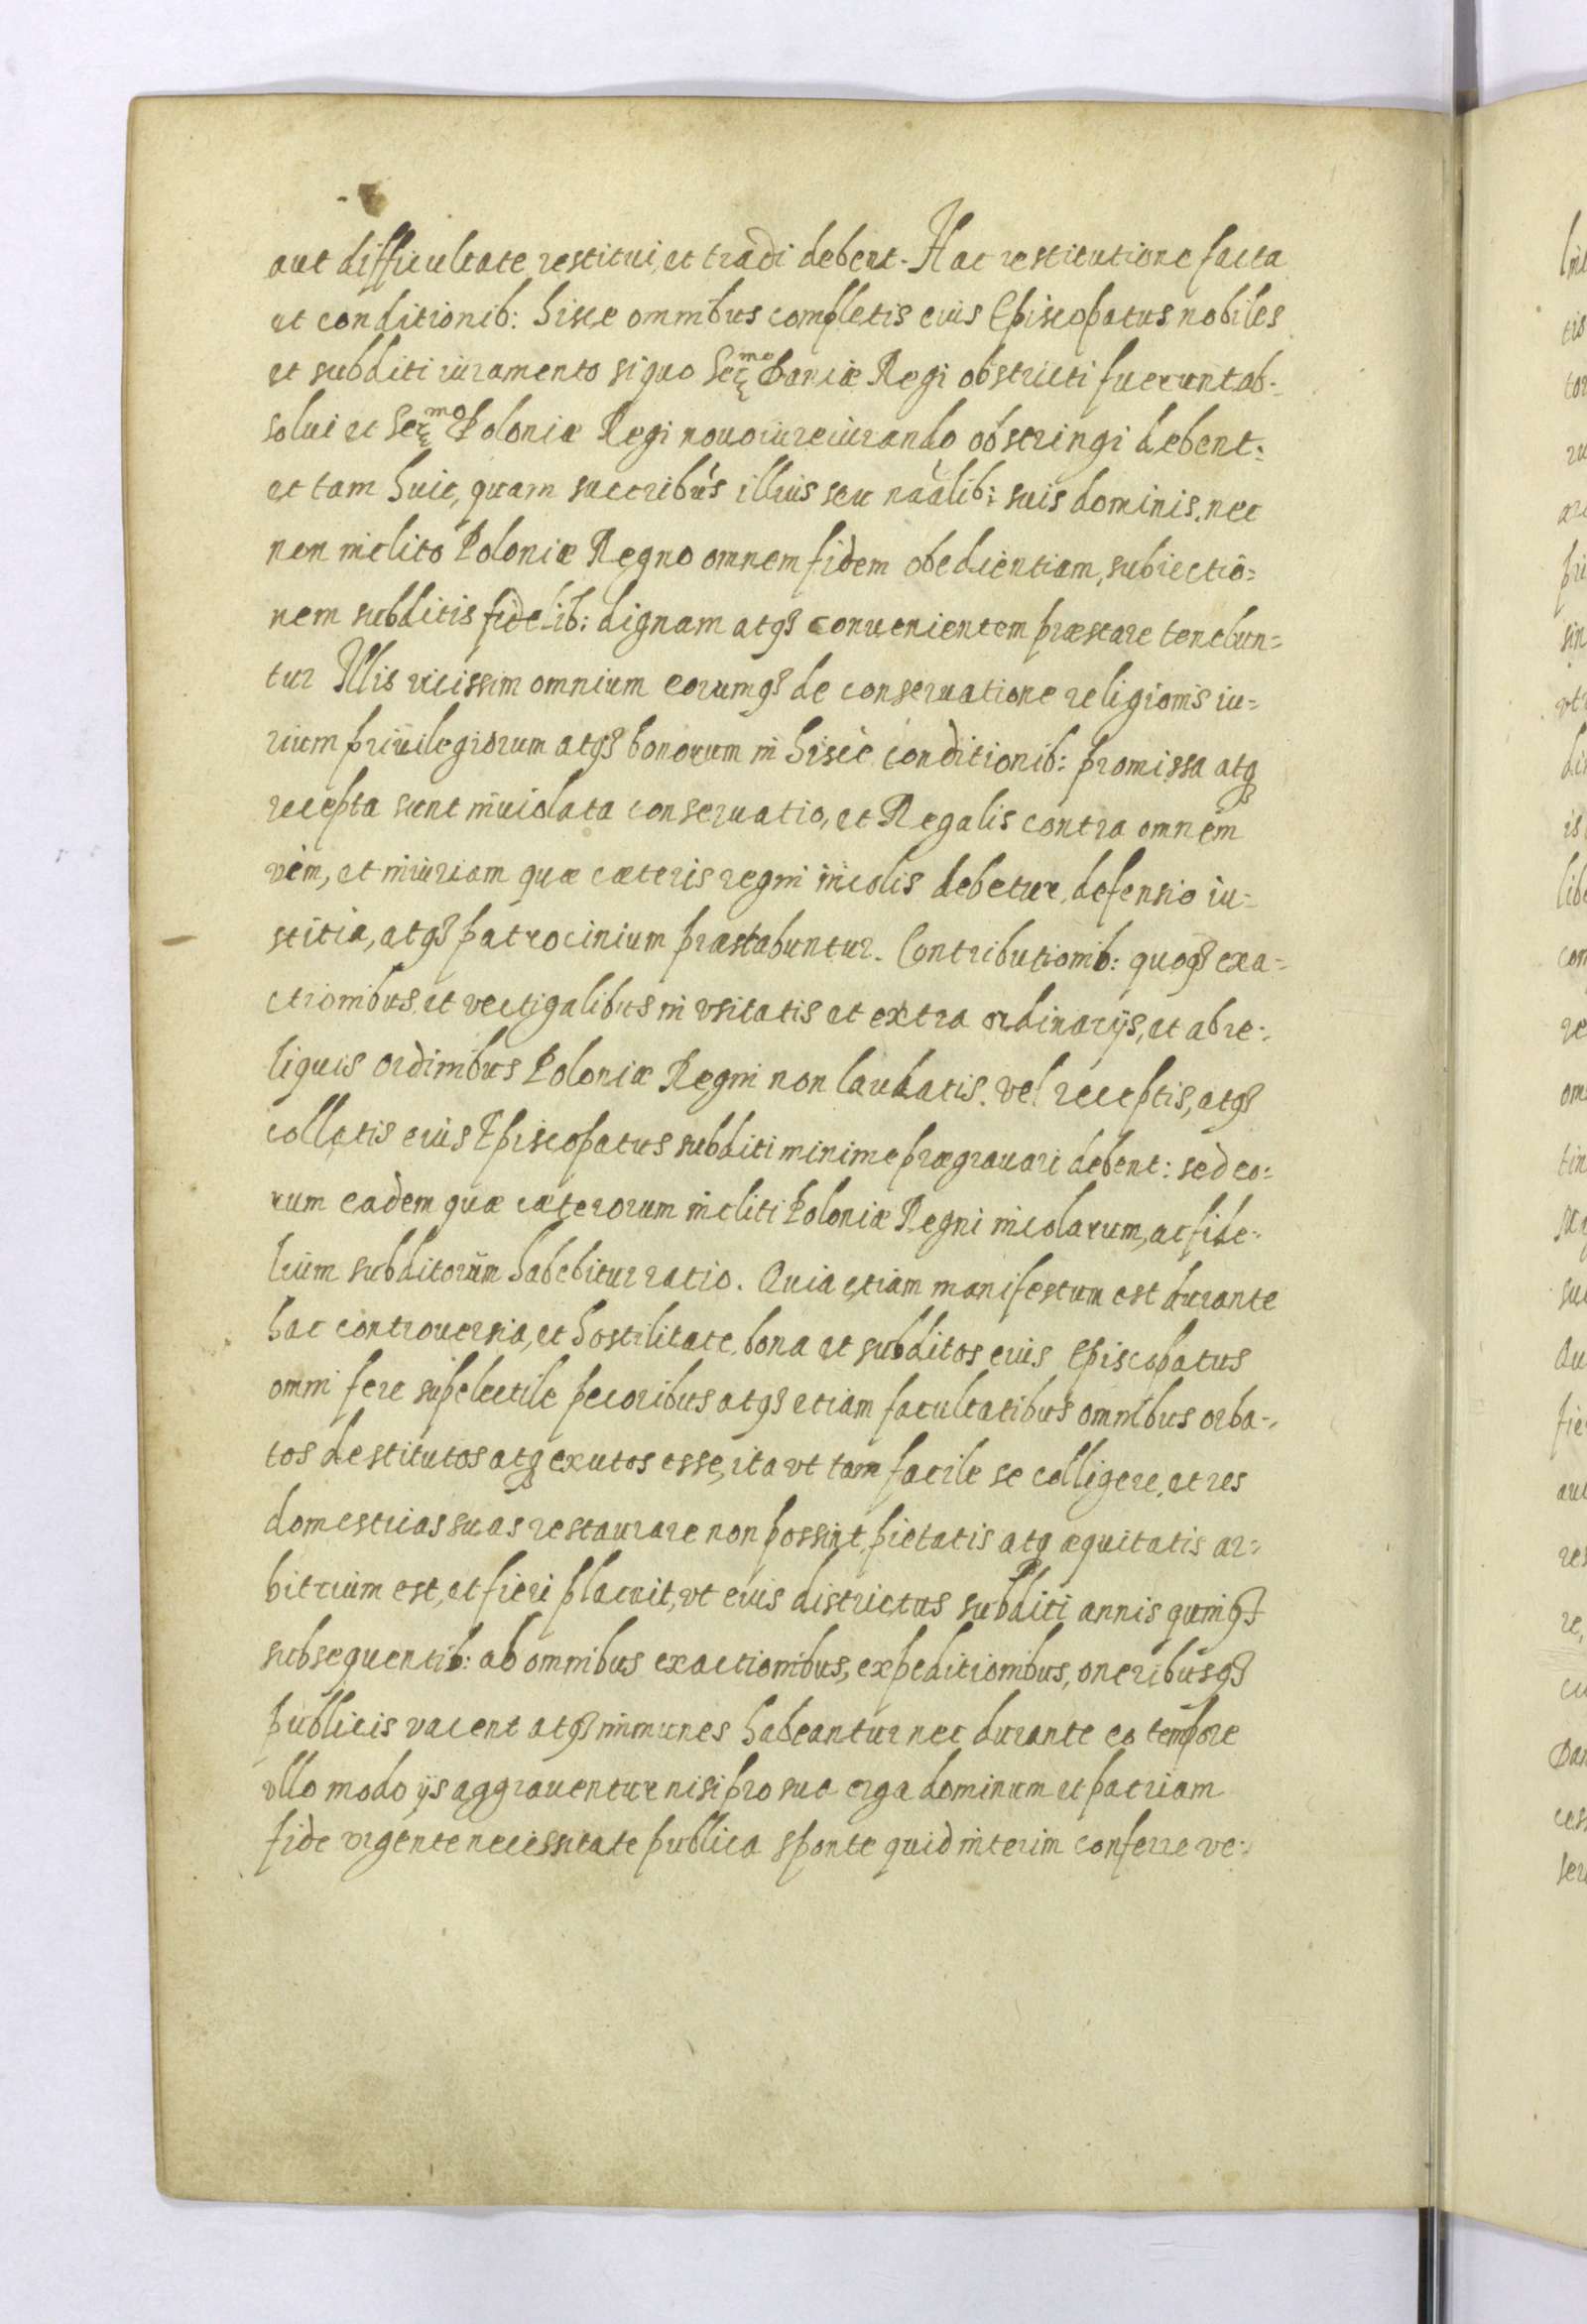 aut difficultate restitui, et tradi debent. Hac restitutione facta
et conditionib: hisce omnibus completis eius Episcopatus nobiles
et subditi iuramento si quo Ser<sup>mo</sup> Daniæ Regi obstricti fuerunt ab-
solui et Ser<sup>mo</sup> Poloniæ Regi nouo iureiurando obstringi debent:
et tam huic, quam succribus illius seu naâlib: suis dominis, nec
non inclito Poloniæ Regno omnem fidem obedientiam, subiectiō=
nem subditis fidelib: dignam atq3 conuenientem præstare tenebun=
tur Illis vicissim omnium eorumq3 de conseruatione religionis iu=
rium priuilegiorum atq3 bonorum in hisce conditionib: promissa atq
recepta sunt inuiolata conseruatio, et Regalis contra omnem
vim, et iniuriam quæ cæteris regni incolis debetur, defensio iu=
stitia, atq3 patrocinium præstabuntur. Contributionib: quoq3 exa=
ctionibus et vectigalibus in vsitatis et extra ordinarijs, et ab re=
liquis ordinibus Poloniæ Regni non laudatis. vel receptis, atq3
collatis eius Episcopatus subditi minime prægrauari debent: sed eo=
rum eadem quæ cæterorum incliti Poloniæ Regni incolarum, ac fide=
lium subditorum habebitur ratio. Quia etiam manifestum est durante
hac controuersia, et hostilitate, bona et subditos eius Episcopatus
omni fere supelectile pecoribus atq3 etiam facultatibus omnibus orba=
tos destitutos atq exutos esse, ita vt tam facile se colligere, et res
domesticas suas restaurare non possint, pietatis atq æquitatis ar=
bitrium est, et fieri placuit, vt eius districtus subditi annis quinq3
subsequentib: ab omnibus exactionibus, expeditionibus, oneribusq3
publicis vacent atq3 immunes habeantur nec durante eo tempore
vllo modo ijs aggrauentur nisi pro sua erga dominum et patriam
fide vrgente necessitate publica sponte quid interim conferre ve=